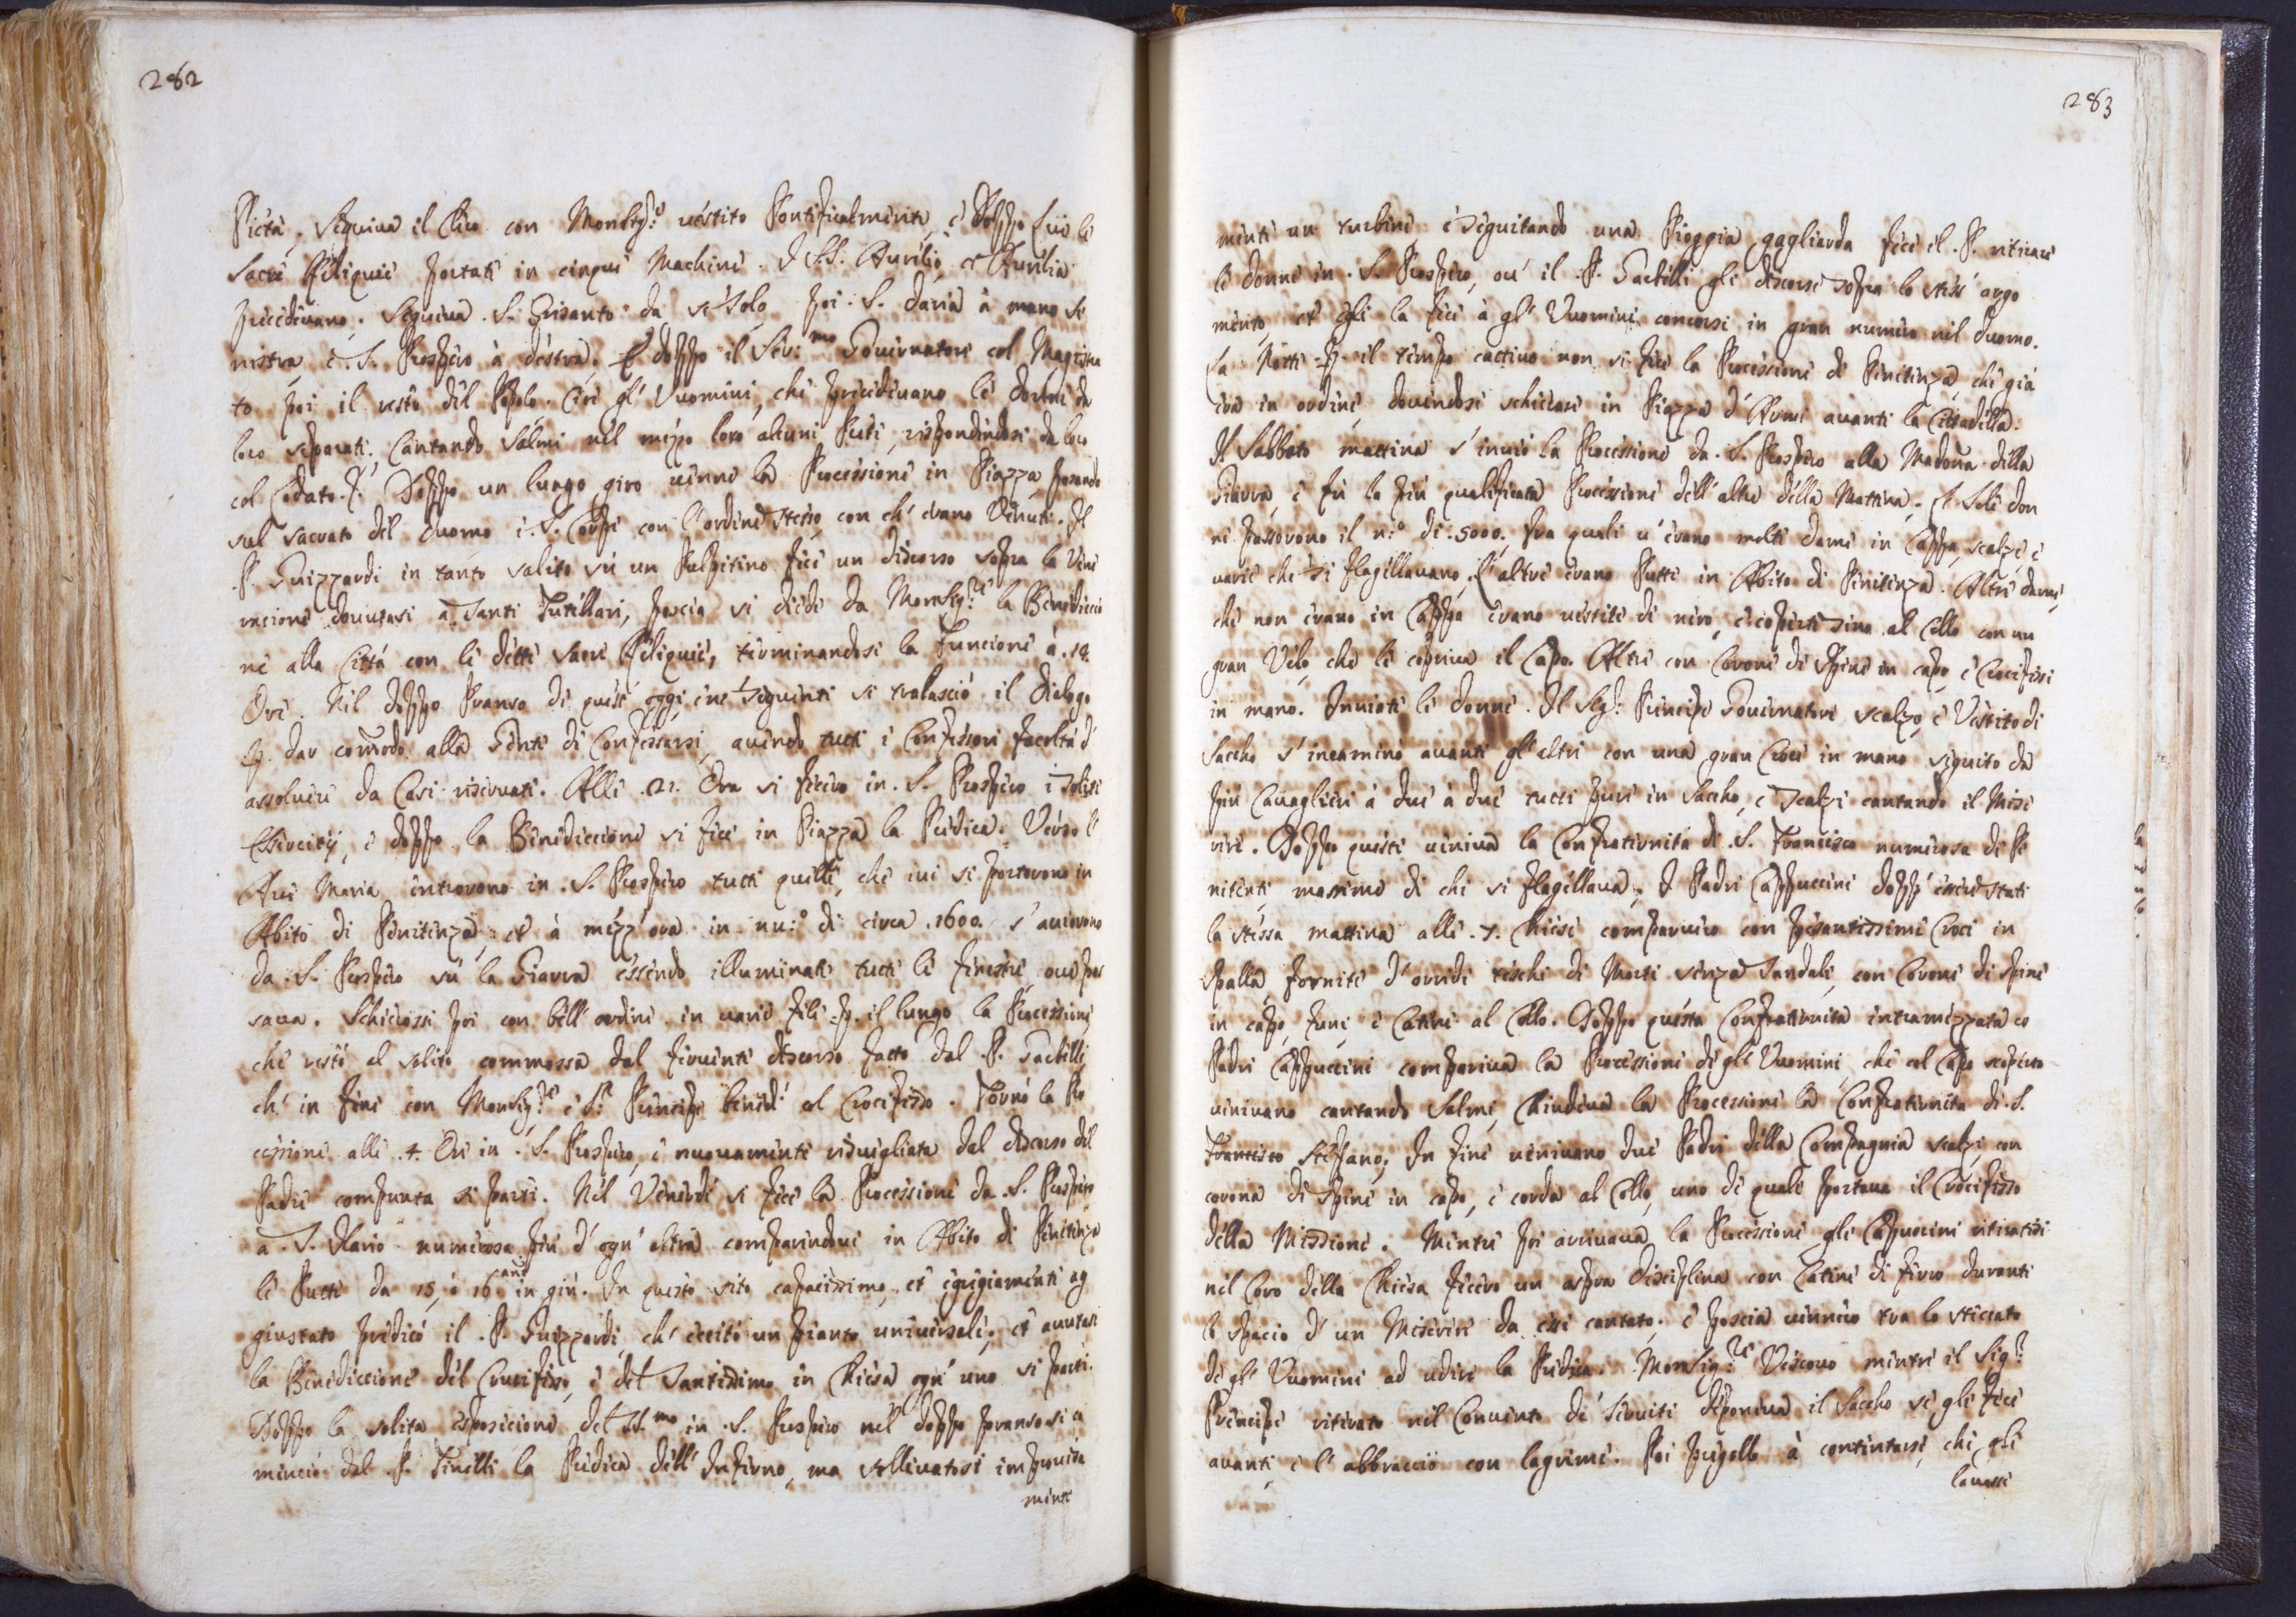 282
Pietà, Seguiua il Clero con Monsig.re uestito Pontificalmente, è doppo Lui le
Sacre Reliquie portate in cinque Machine. I SS. Aurelio, et Aurelia
precedeuano. Seguiua S. Grisanto da se solo, poi S. Daria à mano si
nistra, è S. Prospero à destra. E doppo il Ser.mo Gouernatore col Magistra
to poi il resto del Popolo. Cioè gl' Vuomini, che precedeuano le donne da
loro separati. Cantando Salmi nel mezzo loro alcuni Preti, rispondendosi da loro
col Lodato. Doppo un lungo giro uenne la Processione in Piazza, posando
sul sacrato del duomo i S. Corpi con l'ordine stesso, con ch' erano Venuti. Il
P. Guizzardi in tanto salito sù un Pulpitino fece un discorso sopra la Vene
racione douutasi à Santi Tutellari, poscia si diede da Monsig.re la Benediccio
ne alla Città con le dette sacre Reliquie, terminandosi la Funcione à .14.
Ore. Nel doppo Pranso di quest' oggi, è ne seguenti si tralasciò il Dialogo
p. dar comodo alla Gente di Confessarsi, auendo tutti i Confessori facoltà d'
assoluere da Casi riseruati. Alle .21. Ora si fecero in S. Prospero i soliti
Esercitij, è doppo la Benediccione si fece in Piazza la Predica. Verso l'
Aue Maria entrorono in S. Prospero tutti quelli, che iui si portorono in
Abito di Penitenza, et à mezz'ora in nu.o di circa .1600. s' auiorono
da S. Prospero sù la Giarra essendo illuminate tutte le finestre, oue pas
saua. Schierossi poi con bell' ordine in uarie file p. il lungo la Processione,
che restò al solito commossa dal feruente discorso fatto dal P.
ch' in fine con Monsig.re è S.r Principe benedì col Crocifisso. Tornò la Pro
cessione alle .4. Ore in S. Prospero, è nuouamente risuegliata dal discorso del
Padre compunta si partì. Nel Venerdì si fece la Processione da S. Prospero
à S. Ilario numerosa più d' ogn' altra comparendoui in Abito di Penitenza
le Putte da 15, ò 16 anni in giù. In questo sito capacissimo, et egregiamente ag
giustato predicò il P. Guizzardi, ch' eccitò un pianto uniuersale, et auutasi
la Benediccione del Crucifisso, è del Santissimo in Chiesa ogn' uno si partì.
Doppo la solita esposicione del SS.mo in S. Prospero nel doppo pranso si co
minciò dal P. Finelli la Predica dell' Inferno, ma solleuatosi improuisa
mente
283
mente un turbine, è seguitando una Pioggia gagliarda fece il P. ritirare
le donne in S. Prospero, ou' il P. gli discorse sopra lo stess' argo
mento, et egli la fece à gl' Vuomini concorsi in gran numero nel duomo.
La Notte p. il tempo cattiuo non si fece la Processione di Penitenza, che già
era in ordine, douendosi schierare in Piazza d' Armi auanti la Cittadella.
Il Sabbato mattina s' inuiò la Processione da S. Prospero alla Madona della
Giarra, è fù la più qualificata Processione dell' altre della Mattina. Le Sole don
ne passorono il n.o di .5000. fra quali u' erano molte dame in Cappa, scalze, è
uarie che si flagellauano, l'altre erano Putte in Abito di Penitenza. Altre dame,
che non erano in Cappa erano uestite di nero, è coperte sino al Collo con un
gran Velo, che le copriua il Capo. Altre con Corone di Spine in capo, è Crocifissi
in mano. Inuiate le donne. Il Sig.r Principe Gouernatore scalzo, è Vestito di
Saccho s' incaminò auanti gl' altri con una gran Croce in mano seguito da
più Cauaglieri à due à due tutti pure in Saccho, è scalzi cantando il Mise
rere. Doppo questi ueniua la Confraternità di S. Francisco numerosa di Pe
nitenti, massime di chi si flagellaua. I Padri Cappuccini dopp' essere stati
la stessa mattina alle .7. Chiese comparuero con pesantissime Croci in
spalla, fornite d' orridi teschi di Morti senza sandali, con Corone di Spine
in capo, funi, è Catene al Collo. Doppo questa Confraternita intramezzata co
Padri Cappuccini compariua la Processione de gl' Vuomini che col Capo scoperto
ueniuano cantando Salmi, Chiudeua la Processione la Confraternita di S.
Francisco Stefano. In fine ueniuano due Padri della Compagnia scalzi, con
corona di spine in capo, è corda al Collo, uno de quali portaua il Crocifisso
della Missione. Mentre poi arriuaua la Processione gli Capuccini ritiratisi
nel Coro della Chiesa fecero un aspra Disciplina con Catene di ferro durante
lo spacio d' un Miserere da essi cantato, è poscia uennero tra lo steccato
de gl' Vuomini ad udire la Predica. Monsig.re Vescouo mentre il Sig.r
Principe ritirato nel Conuento de' Seruiti deponeua il Saccho se gli fece
auanti, è l' abbracciò con lagrime. Poi pregollo à contentarsi, che gli
lauasse